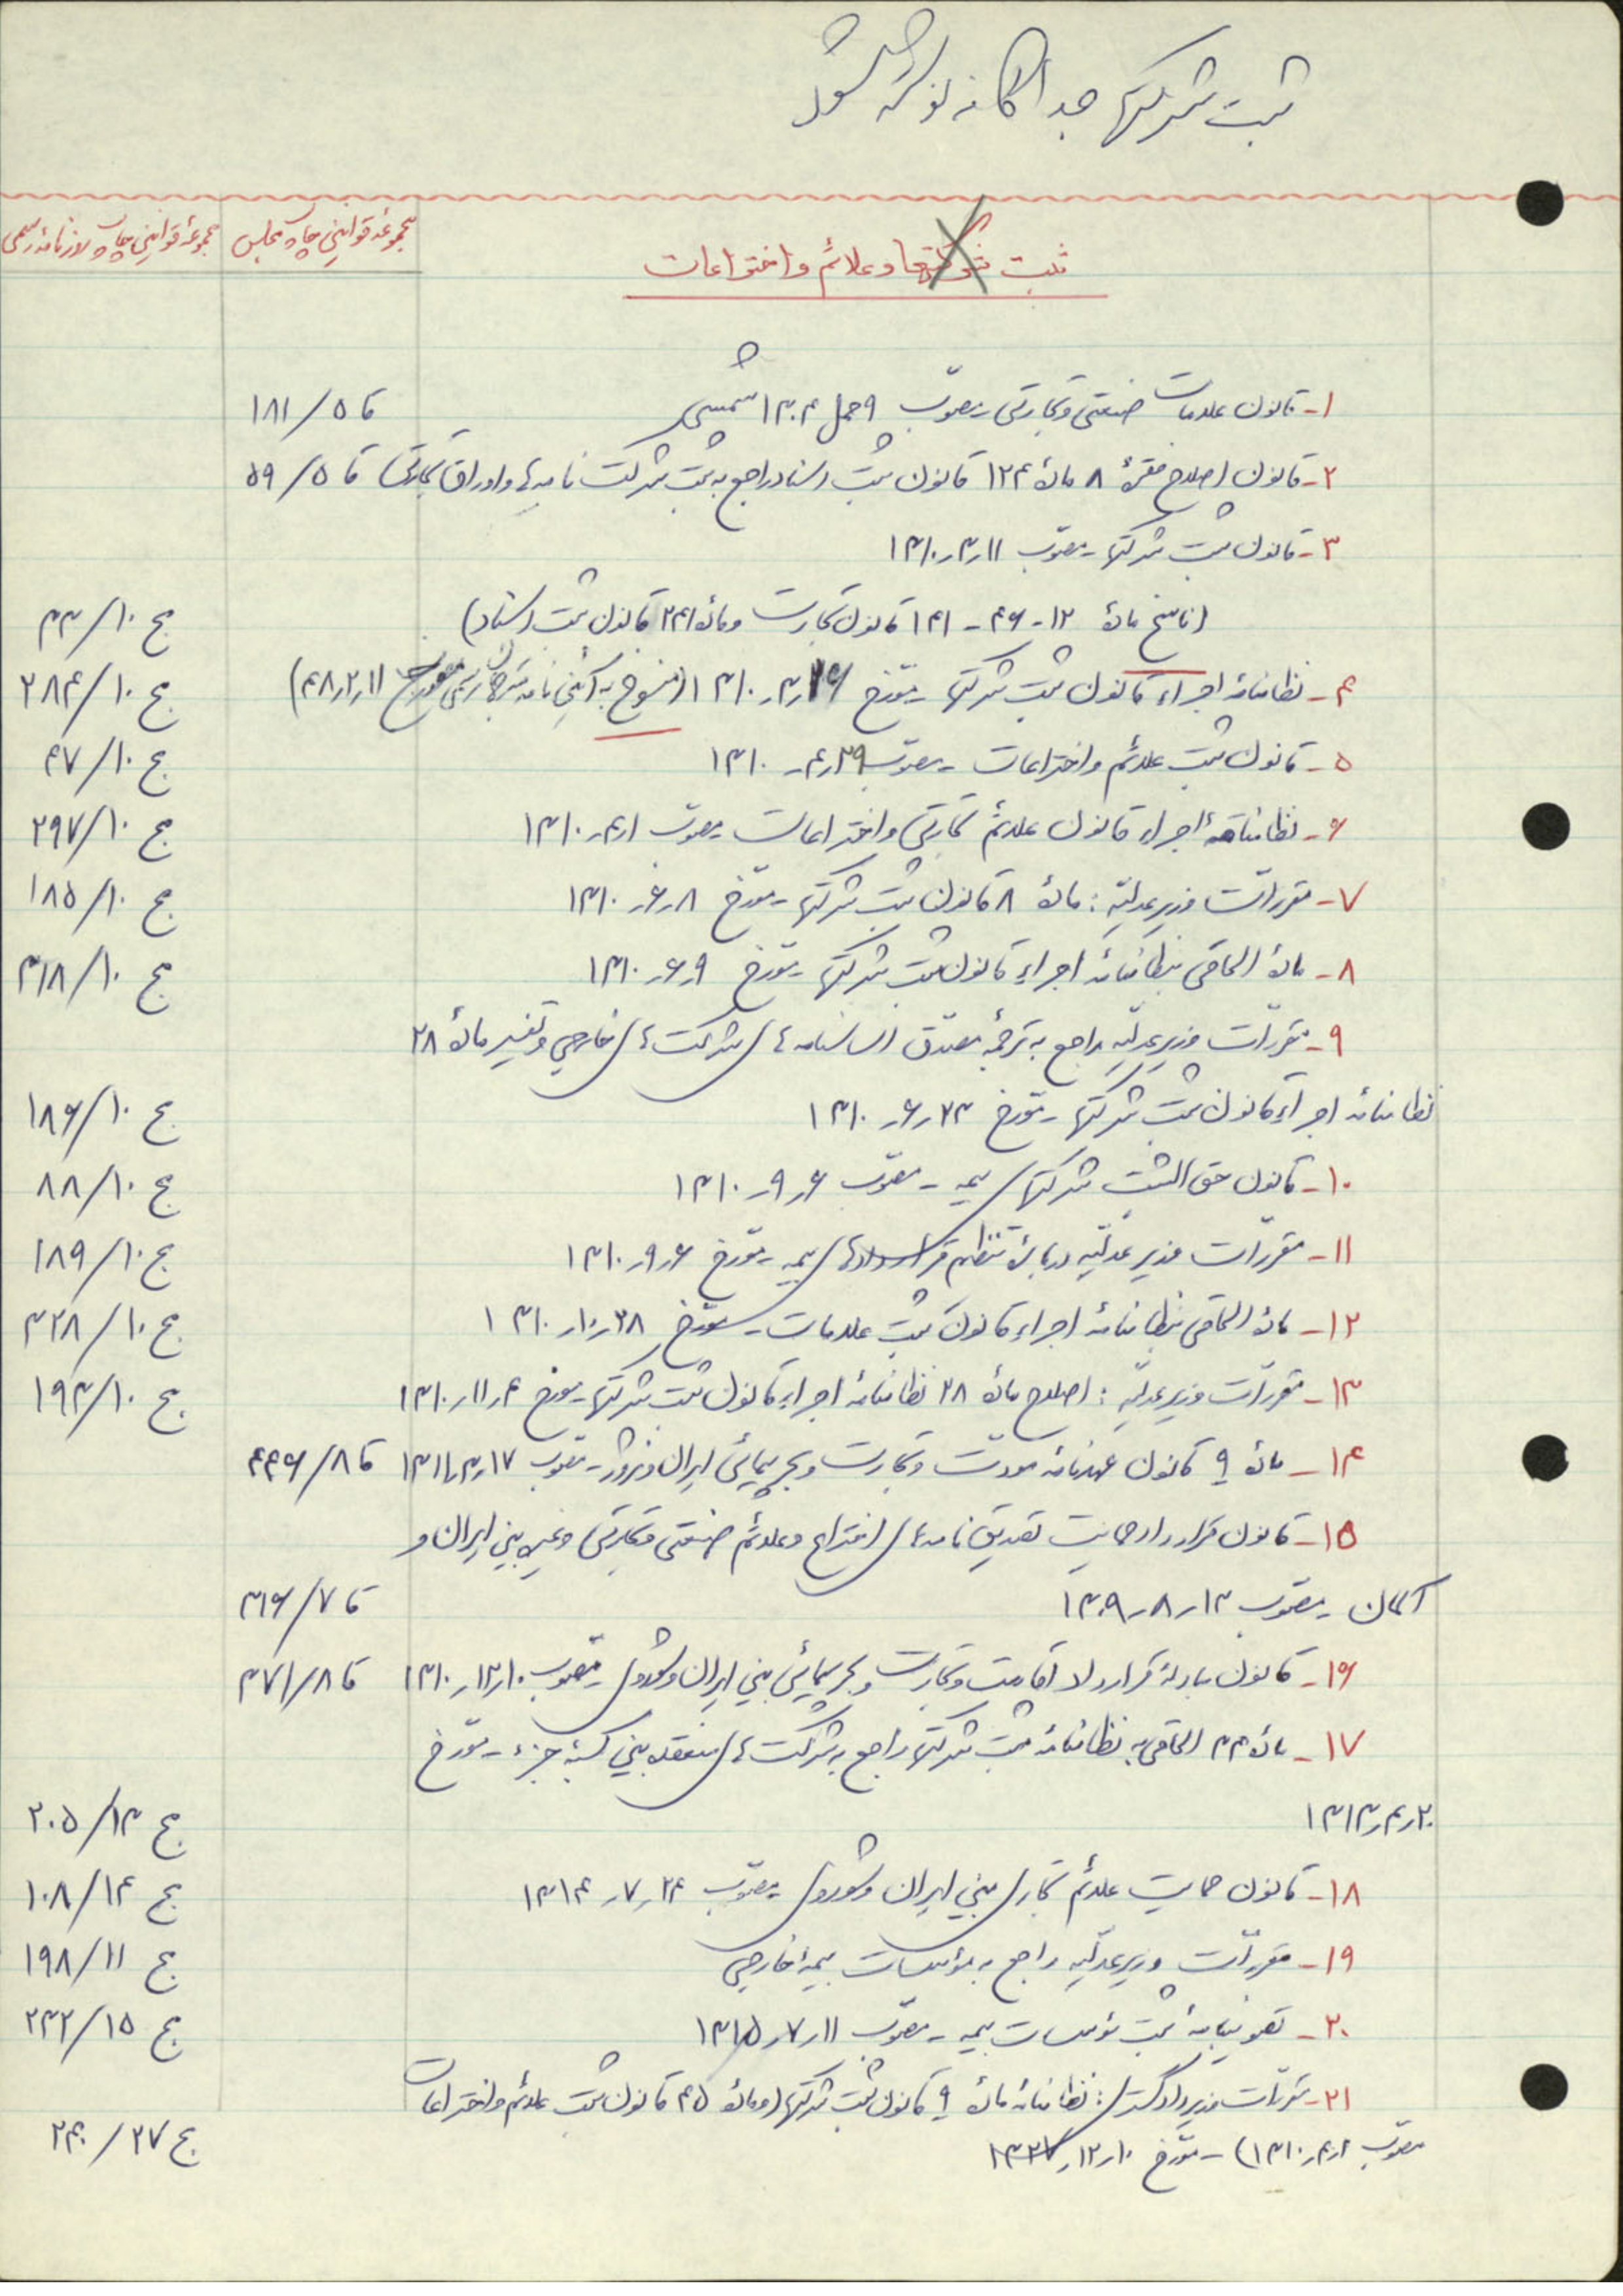 ثبت شرکتها جداگانه نوشته شود
مجموعه قوانین چاپ مجلس
مجموعه قوانین چاپ روزنامه رسمی
ثبت شرکتها و علائم و اختراعات
۱- قانون علامات صنعتی و تجارتی مصوب ۹ حمل ۱۳۰۴ شمسی ق ۵/۱۸۱
۲- قانون اصلاح فقرهٔ ۸ مادهٔ ۱۲۴ قانون ثبت اسناد راجع به ثبت شرکت نامه‌ها و اوراق تجارتی ق ۵/۵۹
۳- قانون ثبت شرکتها - مصوب ۱۱ر۳ر۱۳۱۰
(ناسخ مادهٔ ۱۲-۴۶-۱۴۱ قانون تجارت و مادهٔ ۲۴۱ قانون ثبت اسناد) ج ۱۰/۳۳
۴- نظامنامهٔ اجراء قانون ثبت شرکتها - مورخ ر۳ر۱۳۱۰ (منسوخ به آئین نامه ۱۱ر۲ر۴۸) ج ۱۰/۲۸۴
۵- قانون ثبت علائم و اختراعات - مصوب ر۴ر۱۳۱۰ ج ۱۰/۴۷
۶- نظامنامهٔ اجراء قانون علائم تجارتی و اختراعات مصوب ۱ر۴ر۱۳۱۰ ج ۱۰/۲۹۷
۷- مقررات وزیر عدلیه: مادهٔ ۸ قانون ثبت شرکتها - مورخ ۸ر۶ر۱۳۱۰ ج ۱۰/۱۸۵
۸- مادهٔ الحاقی بنظامنامهٔ اجراء قانون ثبت شرکتها - مورخ ۹ر۶ر۱۳۱۰ ج ۱۰/۳۱۸
۹- مقررات وزیر عدلیه راجع به ترجمهٔ مصدق اساسنامه‌های شرکت‌های خارجی و تفسیر مادهٔ ۲۸
نظامنامهٔ اجراء قانون ثبت شرکتها - مورخ ۲۳ر۶ر۱۳۱۰ ج ۱۰/۱۸۶
۱۰- قانون حق الثبت شرکتهای بیمه - مصوب ۶ر۹ر۱۳۱۰ ج ۱۰/۸۸
۱۱- مقررات وزیر عدلیه دربارهٔ تنظیم قراردادهای بیمه - مورخ ۶ر۹ر۱۳۱۰ ج ۱۰/۱۸۹
۱۲- مادهٔ الحاقی بنظامنامهٔ اجراء قانون ثبت علامات - مورخ ۲۸ر۱۰ر۱۳۱۰ ج ۱۰/۳۲۸
۱۳- مقررات وزیر عدلیه: اصلاح مادهٔ ۲۸ نظامنامهٔ اجراء قانون ثبت شرکتها - مورخ ۴ر۱۱ر۱۳۱۰ ج ۱۰/۱۹۳
۱۴- مادهٔ ۹ قانون عهدنامهٔ مودت و تجارت و بحرپیمائی ایران و نروژ - مصوب ۱۷ر۳ر۱۳۱۱ ق ۸/۴۴۶
۱۵- قانون قرارداد حمایت تصدیق نامه‌های اختراع و علائم صنعتی و تجارتی و غیره بین ایران و
آلمان - مصوب ۱۳ر۸ر۱۳۰۹ ق ۷/۳۱۶
۱۶- قانون مبادلهٔ قرارداد اقامت و تجارت و بحرپیمائی بین ایران و شوروی - مصوب ۱۰ر۱۲ر۱۳۱۰ ق ۸/۳۷۱
۱۷- مادهٔ ۳۳ الحاقی به نظامنامهٔ ثبت شرکتها راجع به شرکت‌های منعقده بین کسبهٔ جزء - مورخ
۲۰ر۴ر۱۳۱۳ ج ۱۳/۲۰۵
۱۸- قانون حمایت علائم تجاری بین ایران و شوروی مصوب ۲۴ر۷ر۱۳۱۴ ج ۱۴/۱۰۸
۱۹- مقررات وزیر عدلیه راجع به مؤسسات بیمهٔ خارجی ج ۱۱/۱۹۸
۲۰- تصویبنامهٔ ثبت مؤسسات بیمه - مصوب ۱۱ر۷ر۱۳۱۵ ج ۱۵/۲۳۲
۲۱- مقررات وزیر دادگستری: نظامنامهٔ مادهٔ ۹ قانون ثبت شرکتها (و مادهٔ ۴۵ قانون ثبت علائم و اختراعات
مصوب ۱ر۴ر۱۳۱۰) - مورخ ۱۰ر۱۲ر ج ۲۷/۲۴۰